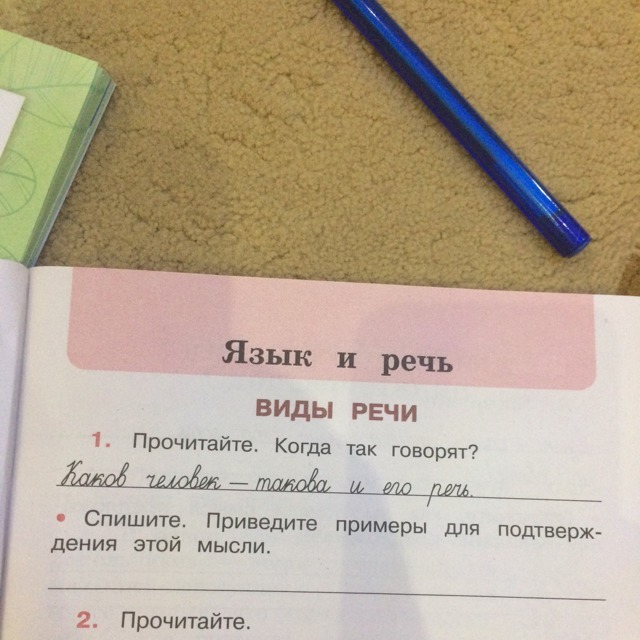 Язык и речь
ВИДЫ РЕЧИ
1. Прочитайте. Когда так говорят?
Каков человек — такова и его речь.
• Спишите. Приведите примеры для подтверж-
дения этой мысли.
2. Прочитайте.